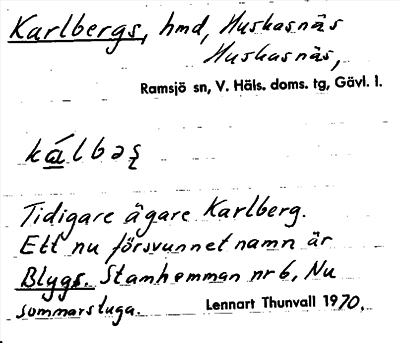 Karlbergs, hmd, Huskasnäs
Huskasnäs,
Ramsjö sn, V. Häls. doms. tg, Gävl. l.
kálbəş
Tidigare ägare Karlberg.
Ett nu försvunnet namn är
Blygs. Stamhemman nr 6, Nu
sommarstuga. Lennart Thunvall 1970.